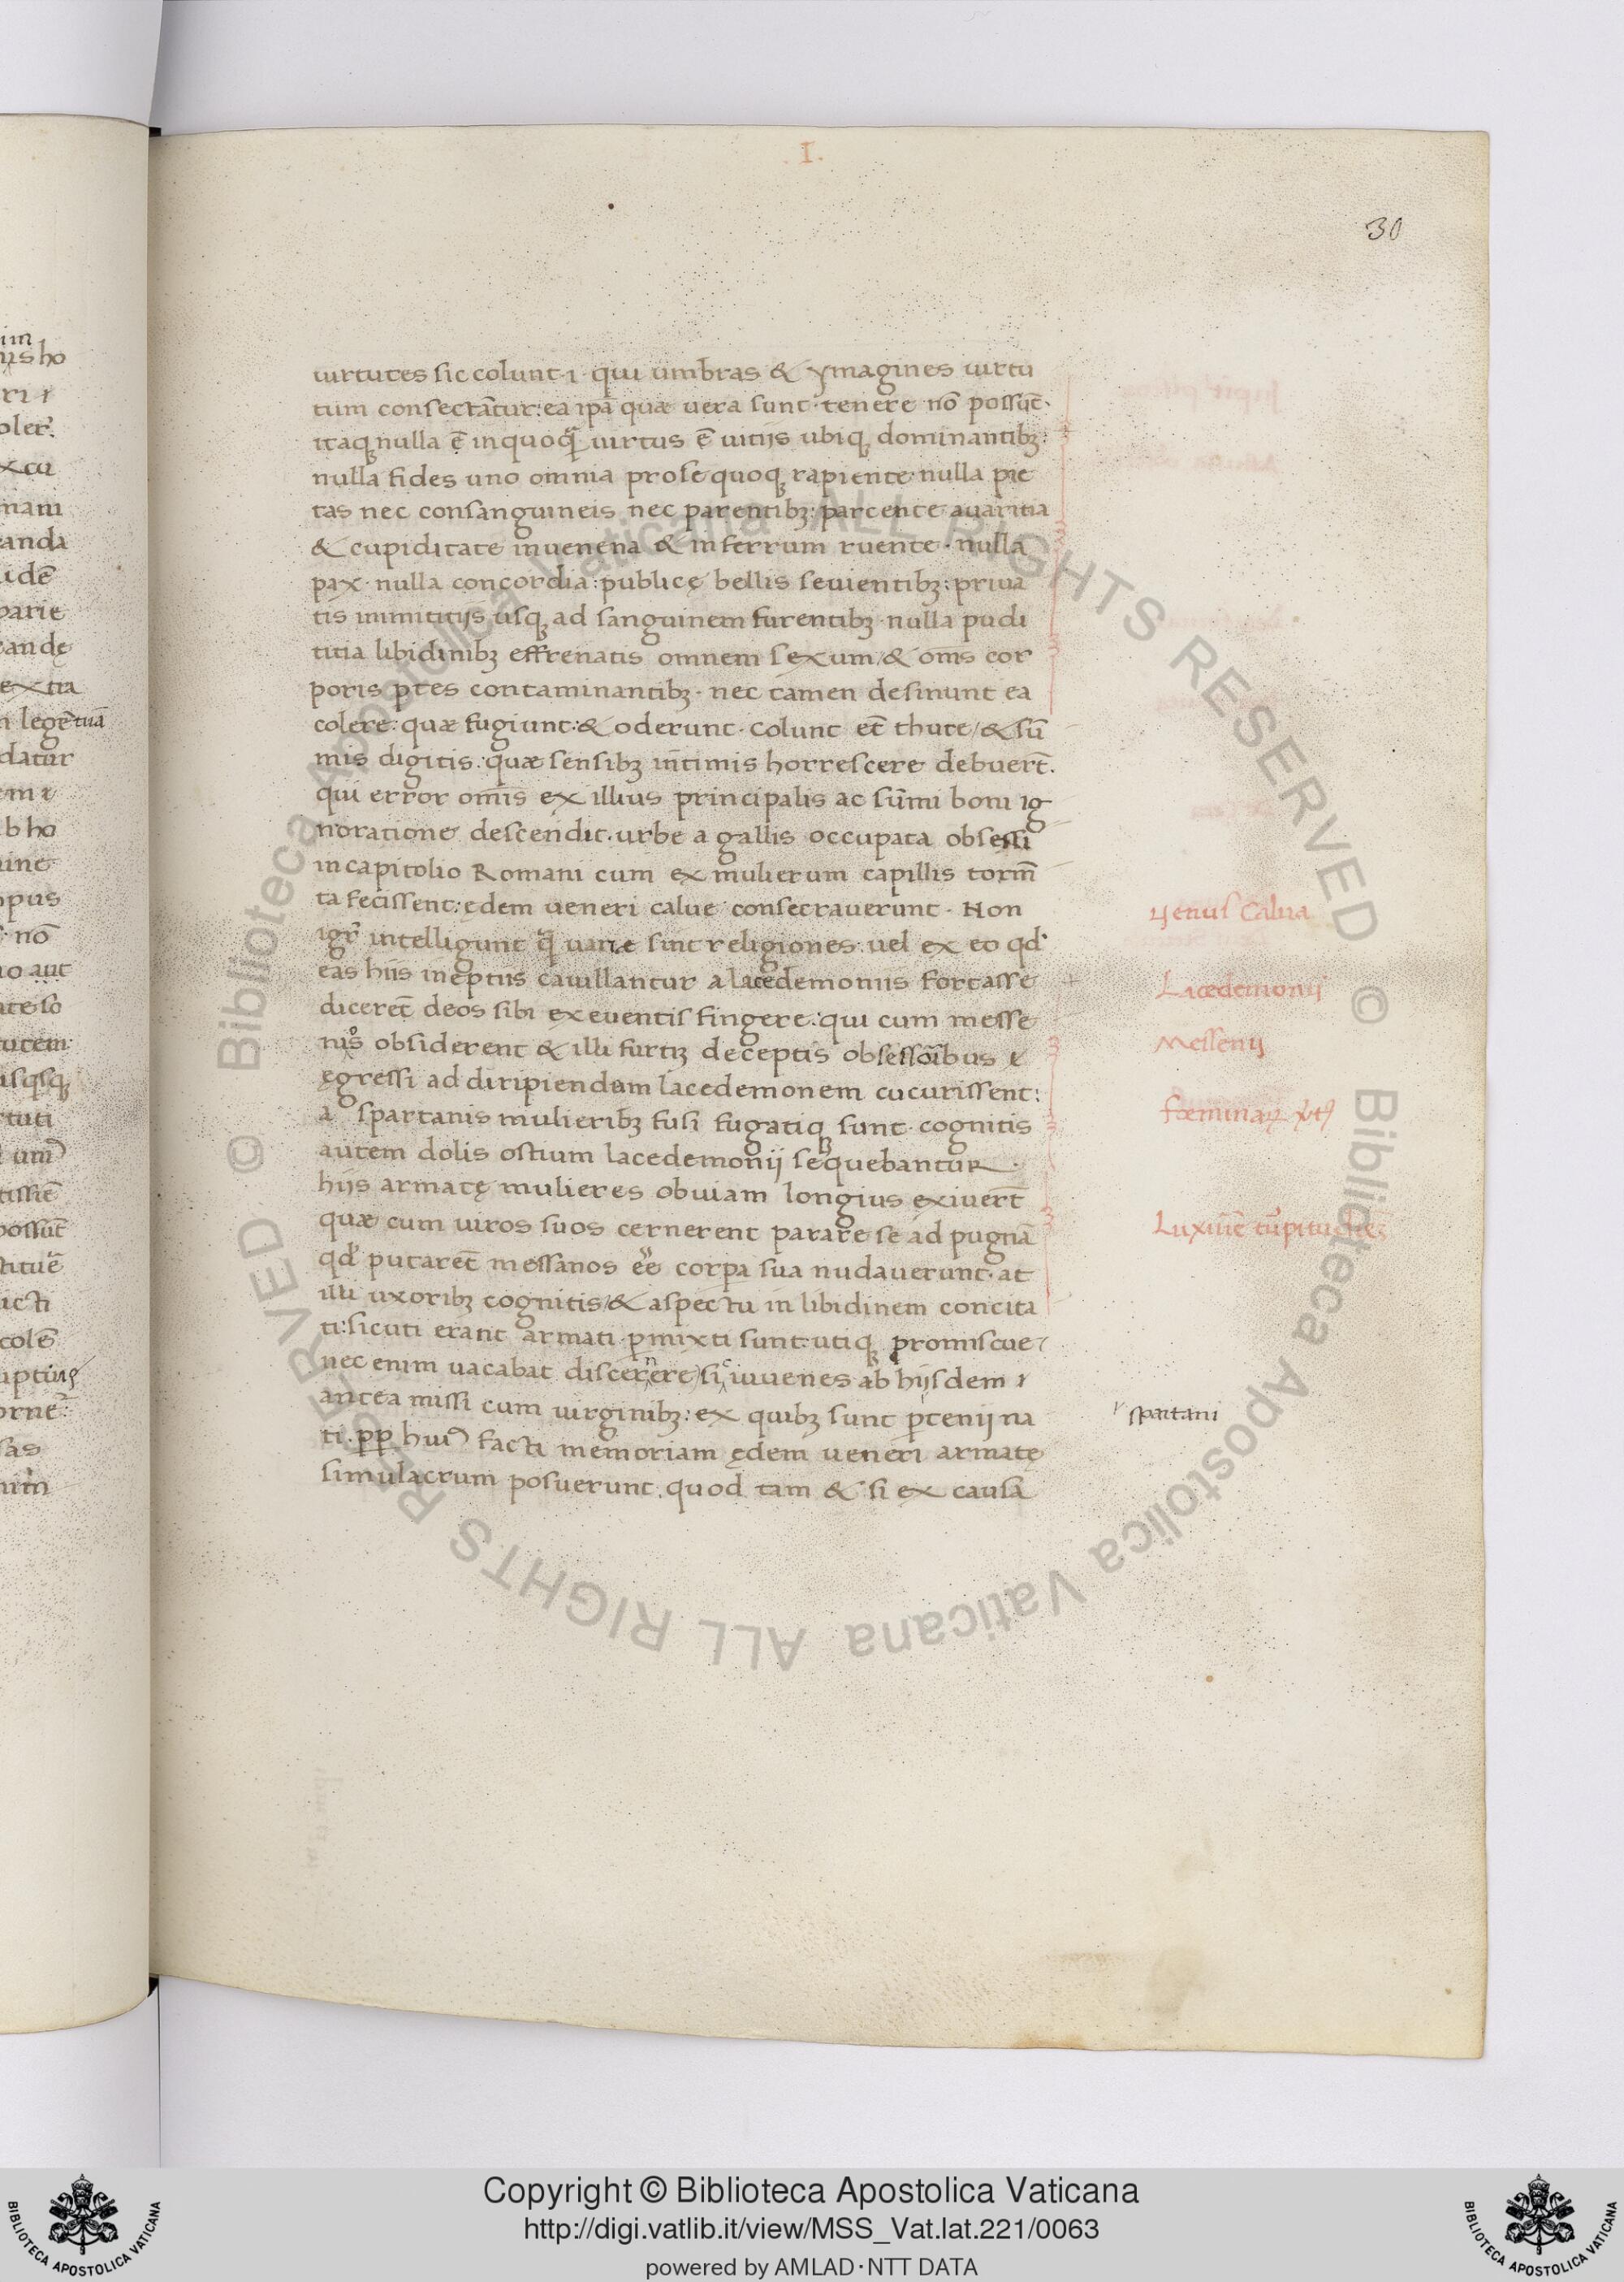 I.
30
uirtutes sic colunt·i· qui umbras & ymagines uirtu
tum consectãtur: ea ip̃a quæ uera sunt· tenere nõ possũt·
itaq; nulla ẽ in quoq̃ uirtus ẽ uitijs ubiq; dominantibꝫ:
nulla fides uno omnia pro se quoq; rapiente· nulla pie
tas nec consanguineis nec parentibꝫ: parcente auaritia
& cupiditate in uenena & in ferrum ruente· nulla
pax· nulla concordia: publicę bellis seuientibꝫ: priua
tis inimititijs usq; ad sanguinem furentibꝫ· nulla pudi
titia libidinibꝫ effrenatis omnem sexum/ & om̃s cor
poris ꝑtes contaminantibꝫ· nec tamen desinunt ea
colere: quæ fugiunt: & oderunt· colunt et̃ thure/ & sũ
mis digitis: quæ sensibꝫ intimis horrescere debuert̃.
qui error om̃is ex illius principalis ac sũmi boni ig
noratione descendit. urbe a gallis occupata obsessi
in capitolio Romani cum ex mulierum capillis torm̃
ta fecissent: ędem ueneri calue consecrauerunt· Non
igr̃ intelligunt q̃ uane sint religiones: uel ex eo qd̃
eas hiis ineptiis cauillantur a lacedemoniis fortasse
diceret̃ deos sibi ex euentis fingere: qui cum messe
nios obsiderent & illi furtiꝫ deceptis obsessoĩbus
ęgressi ad diripiendam lacedemonem cucurissent:
a spartanis mulieribꝫ fusi fugatiq; sunt· cognitis
autem dolis ostium lacedemonij sequebantur·
hijs armatę mulieres obuiam longius exiuert̃
quæ cum uiros suos cernerent parare se ad pugnã
qd̃ putaret̃ messanos eẽ corpa sua nudauerunt· at
illi uxoribꝫ cognitis/ & aspectu in libidinem concita
ti: sicuti erant armati ꝑmixti sunt: utiq; promiscue
nec enim uacabat discernere) sic iuuenes ab hijsdem
antea missi cum uirginibꝫ: ex quibꝫ sunt ꝑtenij na
ti. ꝓꝑ hui⁹ facti memoriam ędem ueneri armatę
simulacrum posuerunt. quod tam̃ & si ex causa
Uenus Calua
Lacedemonij
Messenij
spartani
Copyright © Biblioteca Apostolica Vaticana
http://digi.vatlib.it/view/MSS_Vat.lat.221/0063
powered by AMLAD·NTT DATA
BIBLIOTECA APOSTOLICA VATICANA
BIBLIOTECA APOSTOLICA VATICANA
© Biblioteca Apostolica Vaticana ALL RIGHTS RESERVED © Biblioteca Apostolica Vaticana ALL RIGHTS RESERVED